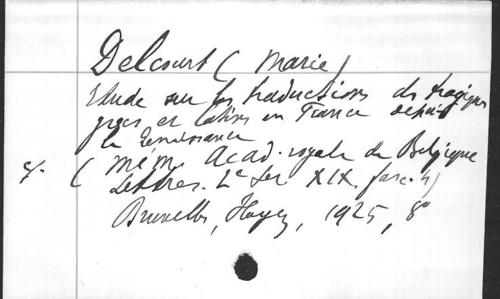 Delcourt (Marie)
Etude sur les traductions des tragiques
grecs et latins en France depuis
la Renaissance
(Mém. Acad. royale de Belgique
Lettres. 2e Ser XIX, fasc. 4)
Bruxelles, Hayez, 1925, 8°